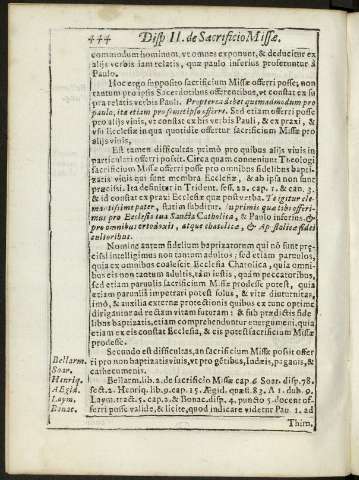 444 Disp II. de Sacrificio Missæ.
commodum hominum, vt omnes exponunt, & deducitur ex
alijs verbis iam relatis, quæ paulo inferius proferuntur à
Paulo.
Hoc ergo supposito sacrificium Missæ offerri posse, non
tantum pro ipsis Sacerdotibus offerentibus, vt constat ex su
pra relatis verbis Pauli. Propterea debet quemadmodum pro
paulo, ita etiam pro semetipso offerre. Sed etiam offerri posse
pro alijs viuis, vt constat ex his verbis Pauli, & ex praxi, &
vsu Ecclesiæ in qua quotidie offertur sacrificium Missæ pro
alijs viuis,
Est tamen difficultas primò pro quibus alijs viuis in
particulari offerri possit. Circa quam conueniunt Theologi
sacrificium Missæ offerri posse pro omnibus fidelibus bapti-
zatis viuis qui sunt membra Ecclesiæ, & ab ipsa non sunt
præcisi. Ita definitur in Trident. sess. 22. cap. 1. & can. 3.
& id constat ex praxi Ecclesiæ quæ post verba. Te igitur cle-
mentissime pater, statim subdit in primis quæ tibi offeri-
mus pro Ecclesia tua Sancta Catholica, & Paulo inferius. &
pro omnibus ortodoxis, atque chatolicæ, & Apostolicæ fidei
cultoribus.
Nomine autem fidelium baptizatorum qui nõ sunt præ-
cisi intelligimus non tantum adultos; sed etiam paruulos,
quia ex omnibus coalescit Ecclesia Chatolica, quia omni-
bus eis non tantum adultis, tàm iustis, quàm peccatoribus,
sed etiam paruulis sacrificium Missæ prodesse potest, quia
etiam paruulis impetrari potest salus, & vitæ diuturnitas,
imò, & auxilia externæ protectionis quibus ex tunc optimè
dirigantur ad rectam vitam futuram: & sub prædictis fide
libus baptizatis, etiam comprehenduntur energumeni, quia
etiam ex eis constat Ecclesia, & eis potest sacrificium Missæ
prodesse.
Secundo est difficultas, an sacrificium Missæ possit offer
Bellarm. ri pro non baptizatis viuis, vt pro gẽtibus, Iudæis, paganis, &
Soar. cathecumenis.
Henriq. Bellarm. lib. 2. de sacrificio Missæ cap. 6 Soar. disp. 78.
Ægid. sect. 2. Henriq. lib. 9. cap. 15. Ægid. quæst. 83. A 1. dub. 9.
Laym. Laym. tract. 5. cap. 2. & Bonac. disp. 4. puncto 5. docent of-
Bonac. ferri posse valide, & licite, quod indicare videtur Pau. 1. ad
Thim.